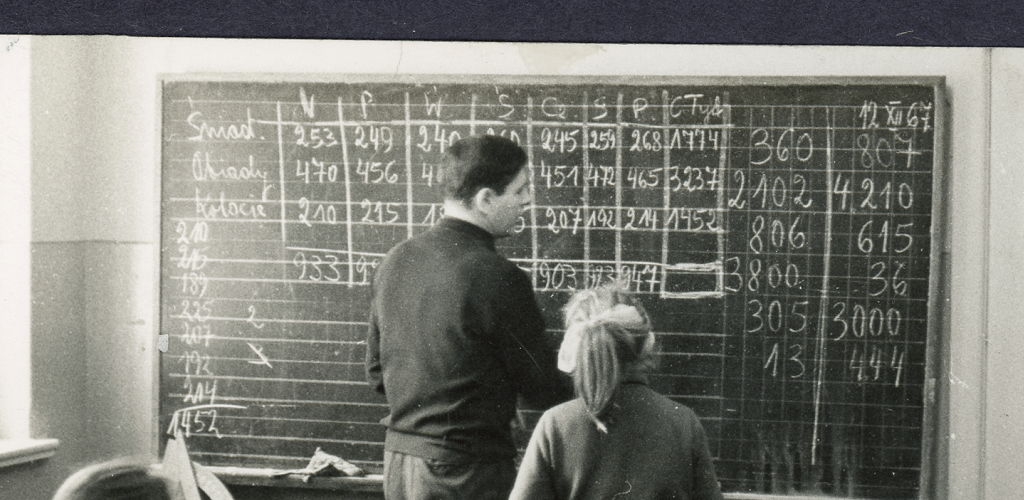 N P. W Ś Cz S P. C Tydz
12 XII 67
Śniad. 253 249 240 260 245 259 268 1774
Obiady 470 456 451 472 465 3237
Kolacje 210 215 207 192 214 1452
933 903 923 947
210
215
189
225 2
207
192
214
1452
360 807
2102 4210
806 615
3800 36
305 3000
13 444